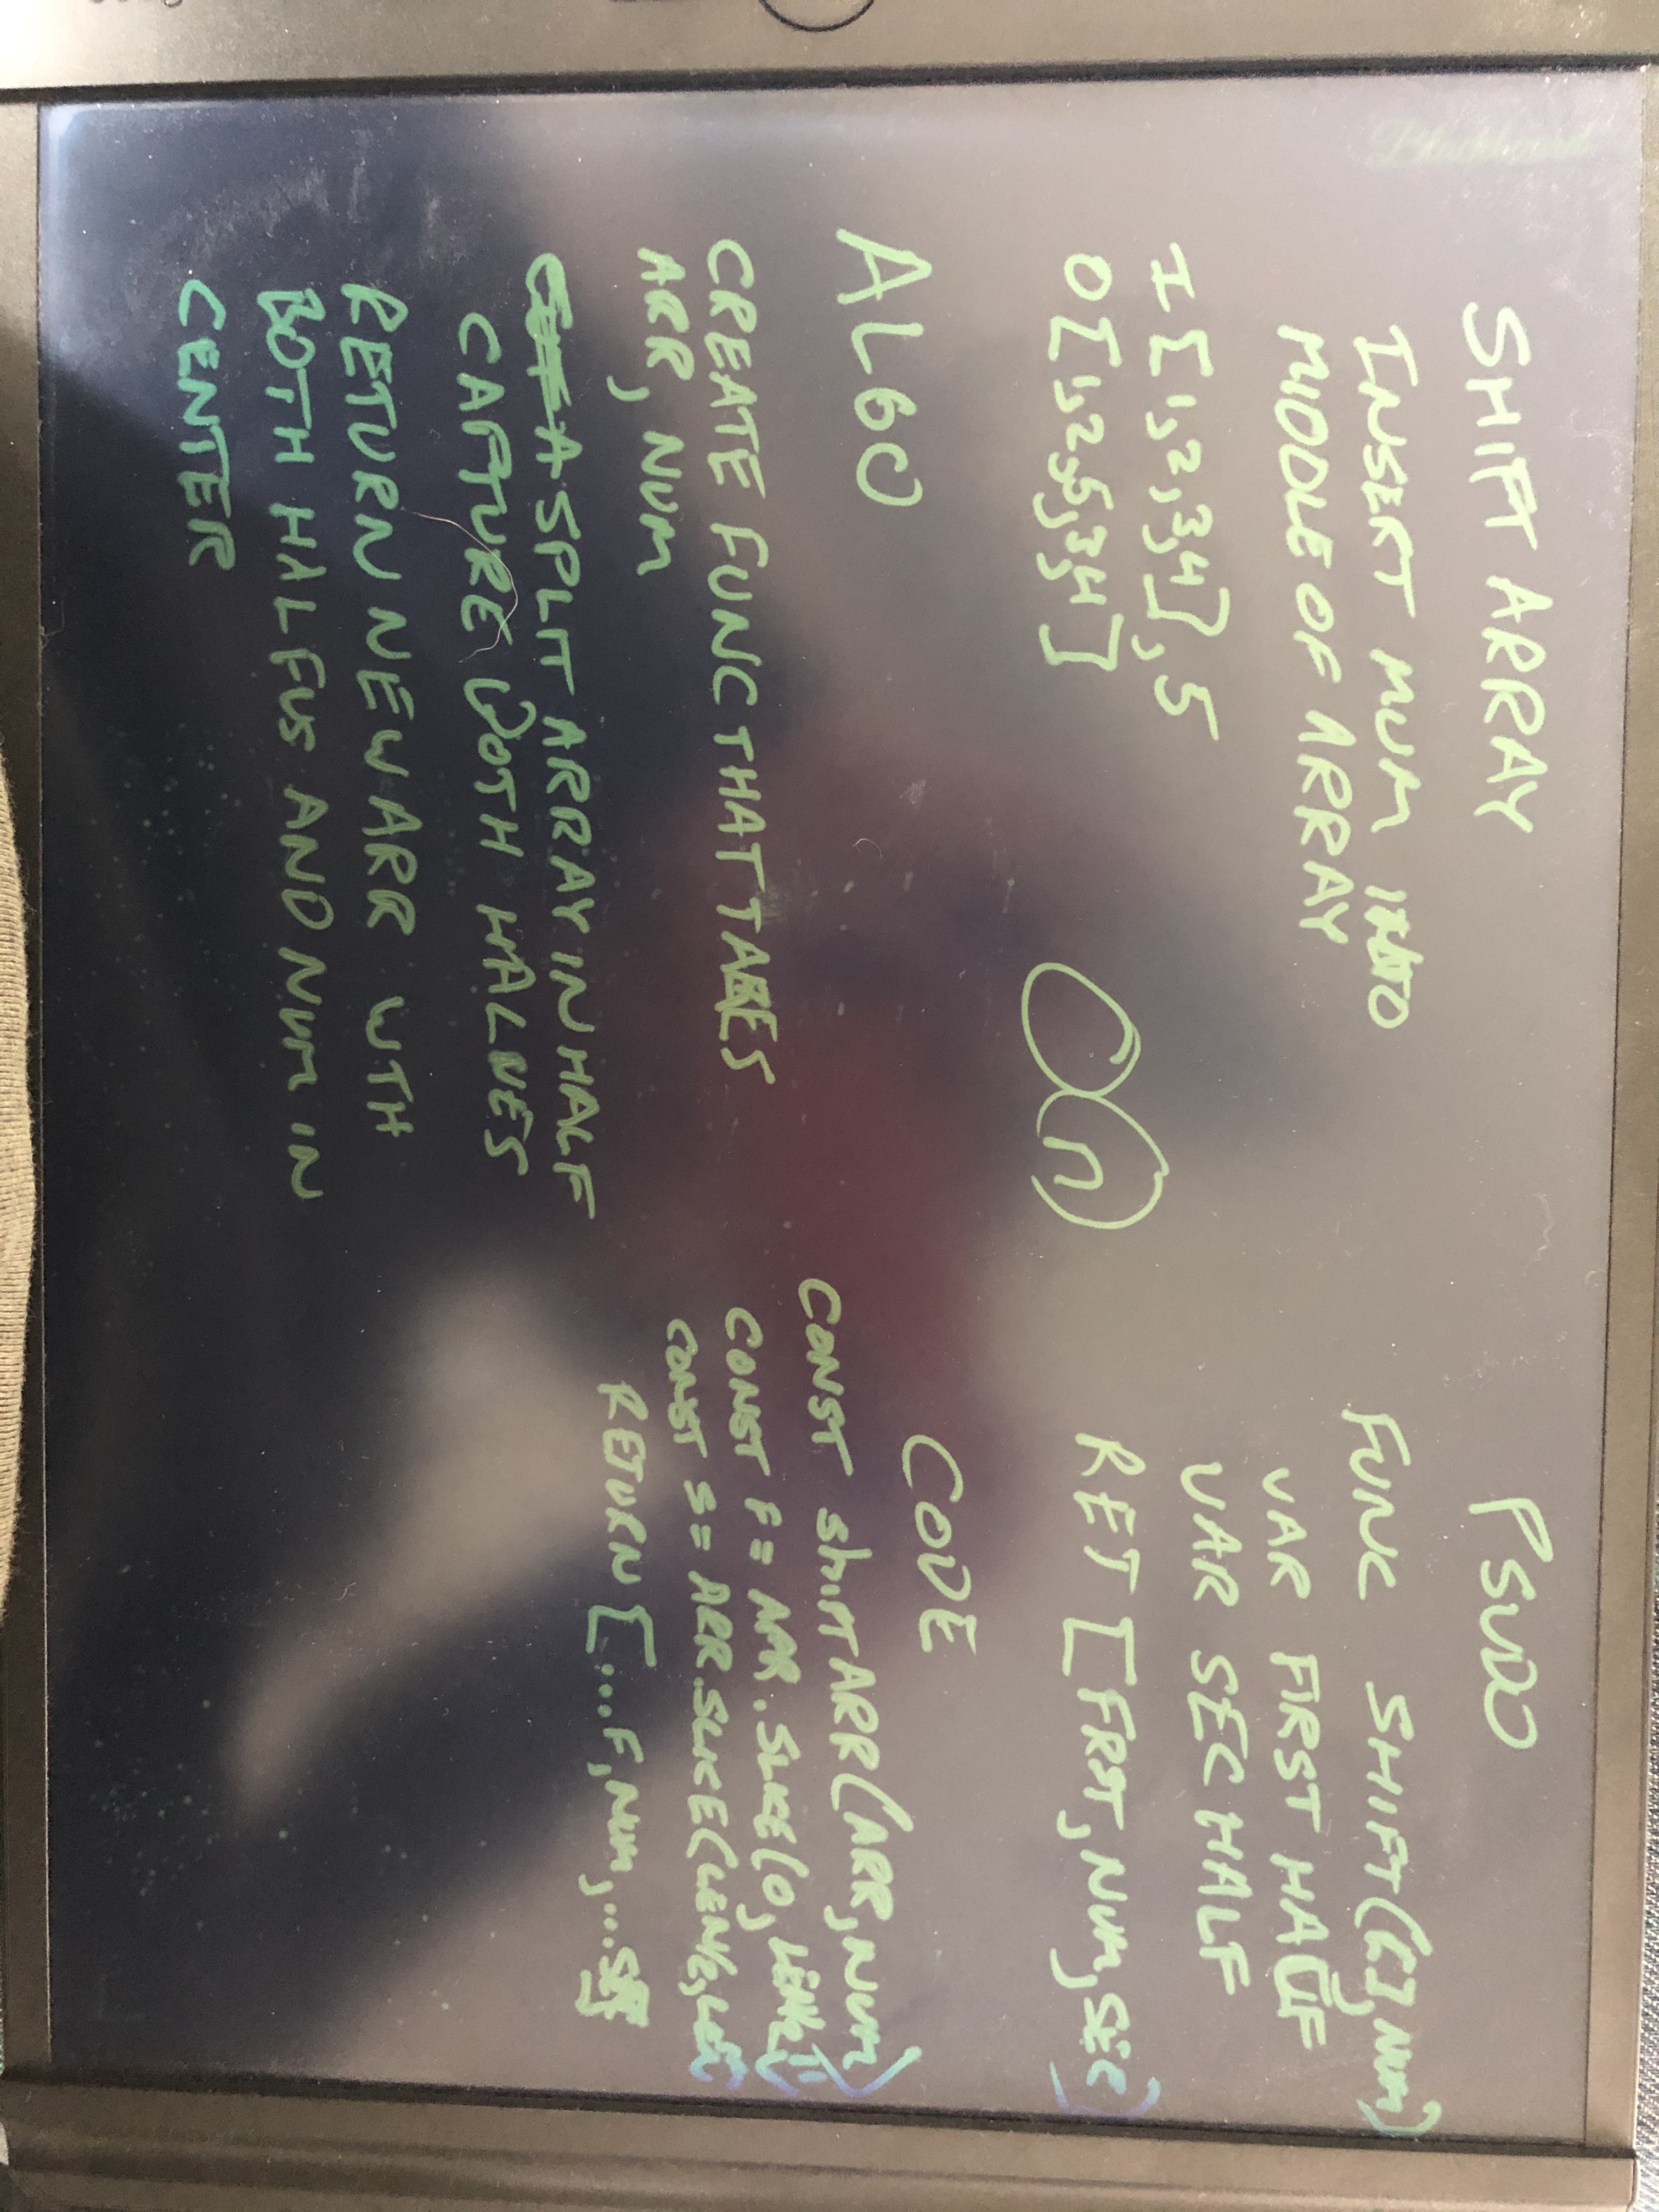 Blackboard
SHIFT ARRAY
INSERT NUM INTO
MIDDLE OF ARRAY
I [1,2,3,4], 5
O [1,2,5,3,4]
O(n)
ALGO
CREATE FUNC THAT TAKES
ARR, NUM
A SPLIT ARRAY IN HALF
CAPTURE BOTH HALVES
RETURN NEW ARR WTH
BOTH HALFUS AND NUM IN
CENTER
PSUDO
FUNC SHIFT([], NUM)
VAR FIRST HALF
VAR SEC HALF
RET [FRST, NUM, SEC]
CODE
CONST ShIFTARR(ARR, NUM)
CONST F = ARR.SLICE(0,
CONST S = ARR.SLICE(
RETURN [...F, NUM, ...S